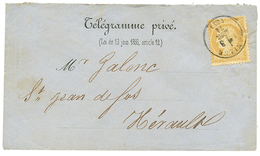 Télégramme privé.
(Loi du 13 juin 1866, article 12.)
Mr Galonc
St jean de fos
Hérault